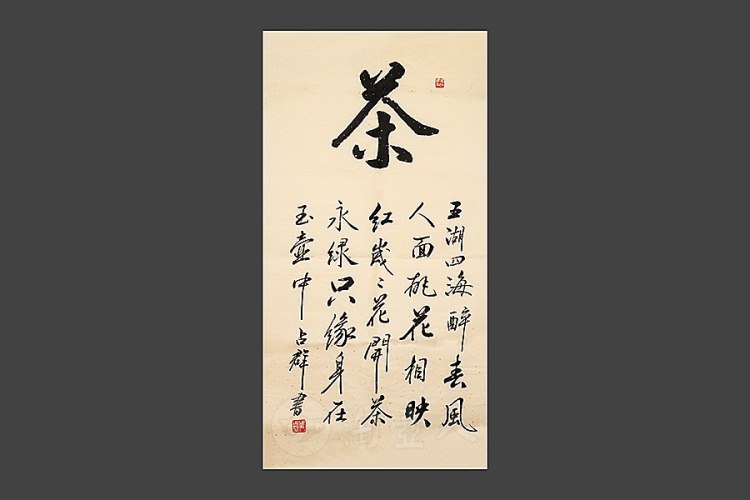 茶
五湖四海醉春風
人面桃花相映
紅歲〻花開茶
永绿只缘身在
玉壺中占群書